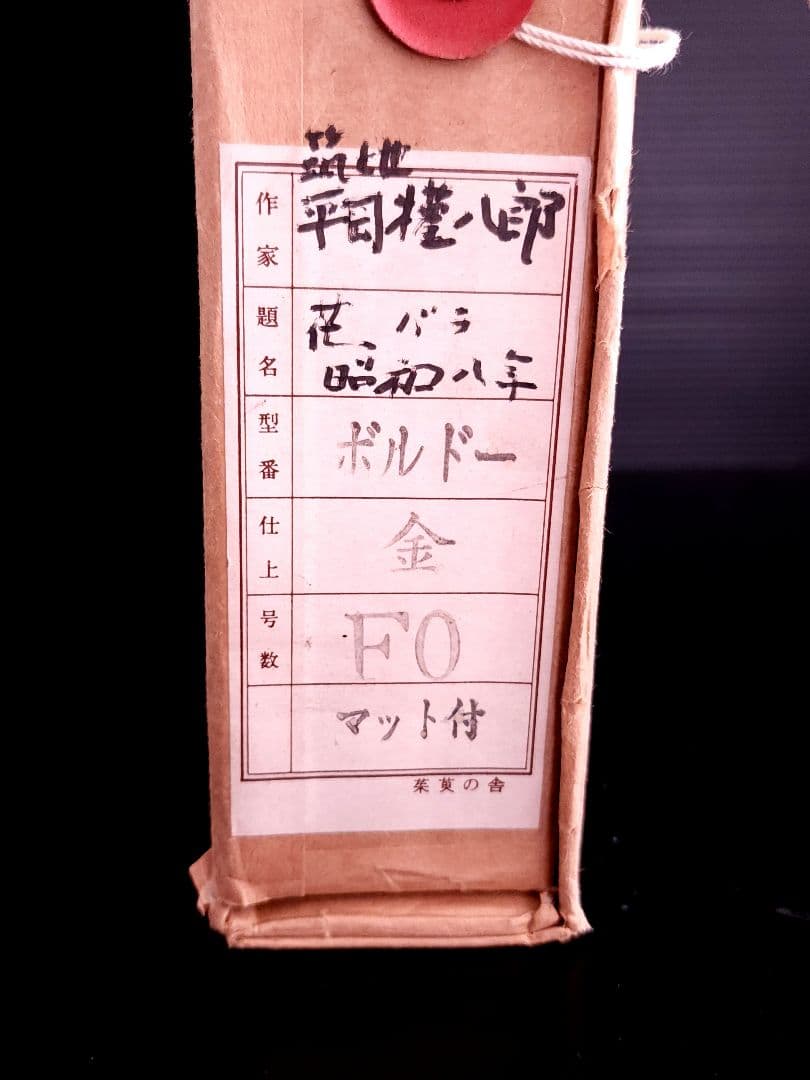 作家
筑地
平岡権八郎
題名
花、バラ
昭和八年
型番
ボルドー
仕上
金
号数
F0
マット付
茱萸の舎